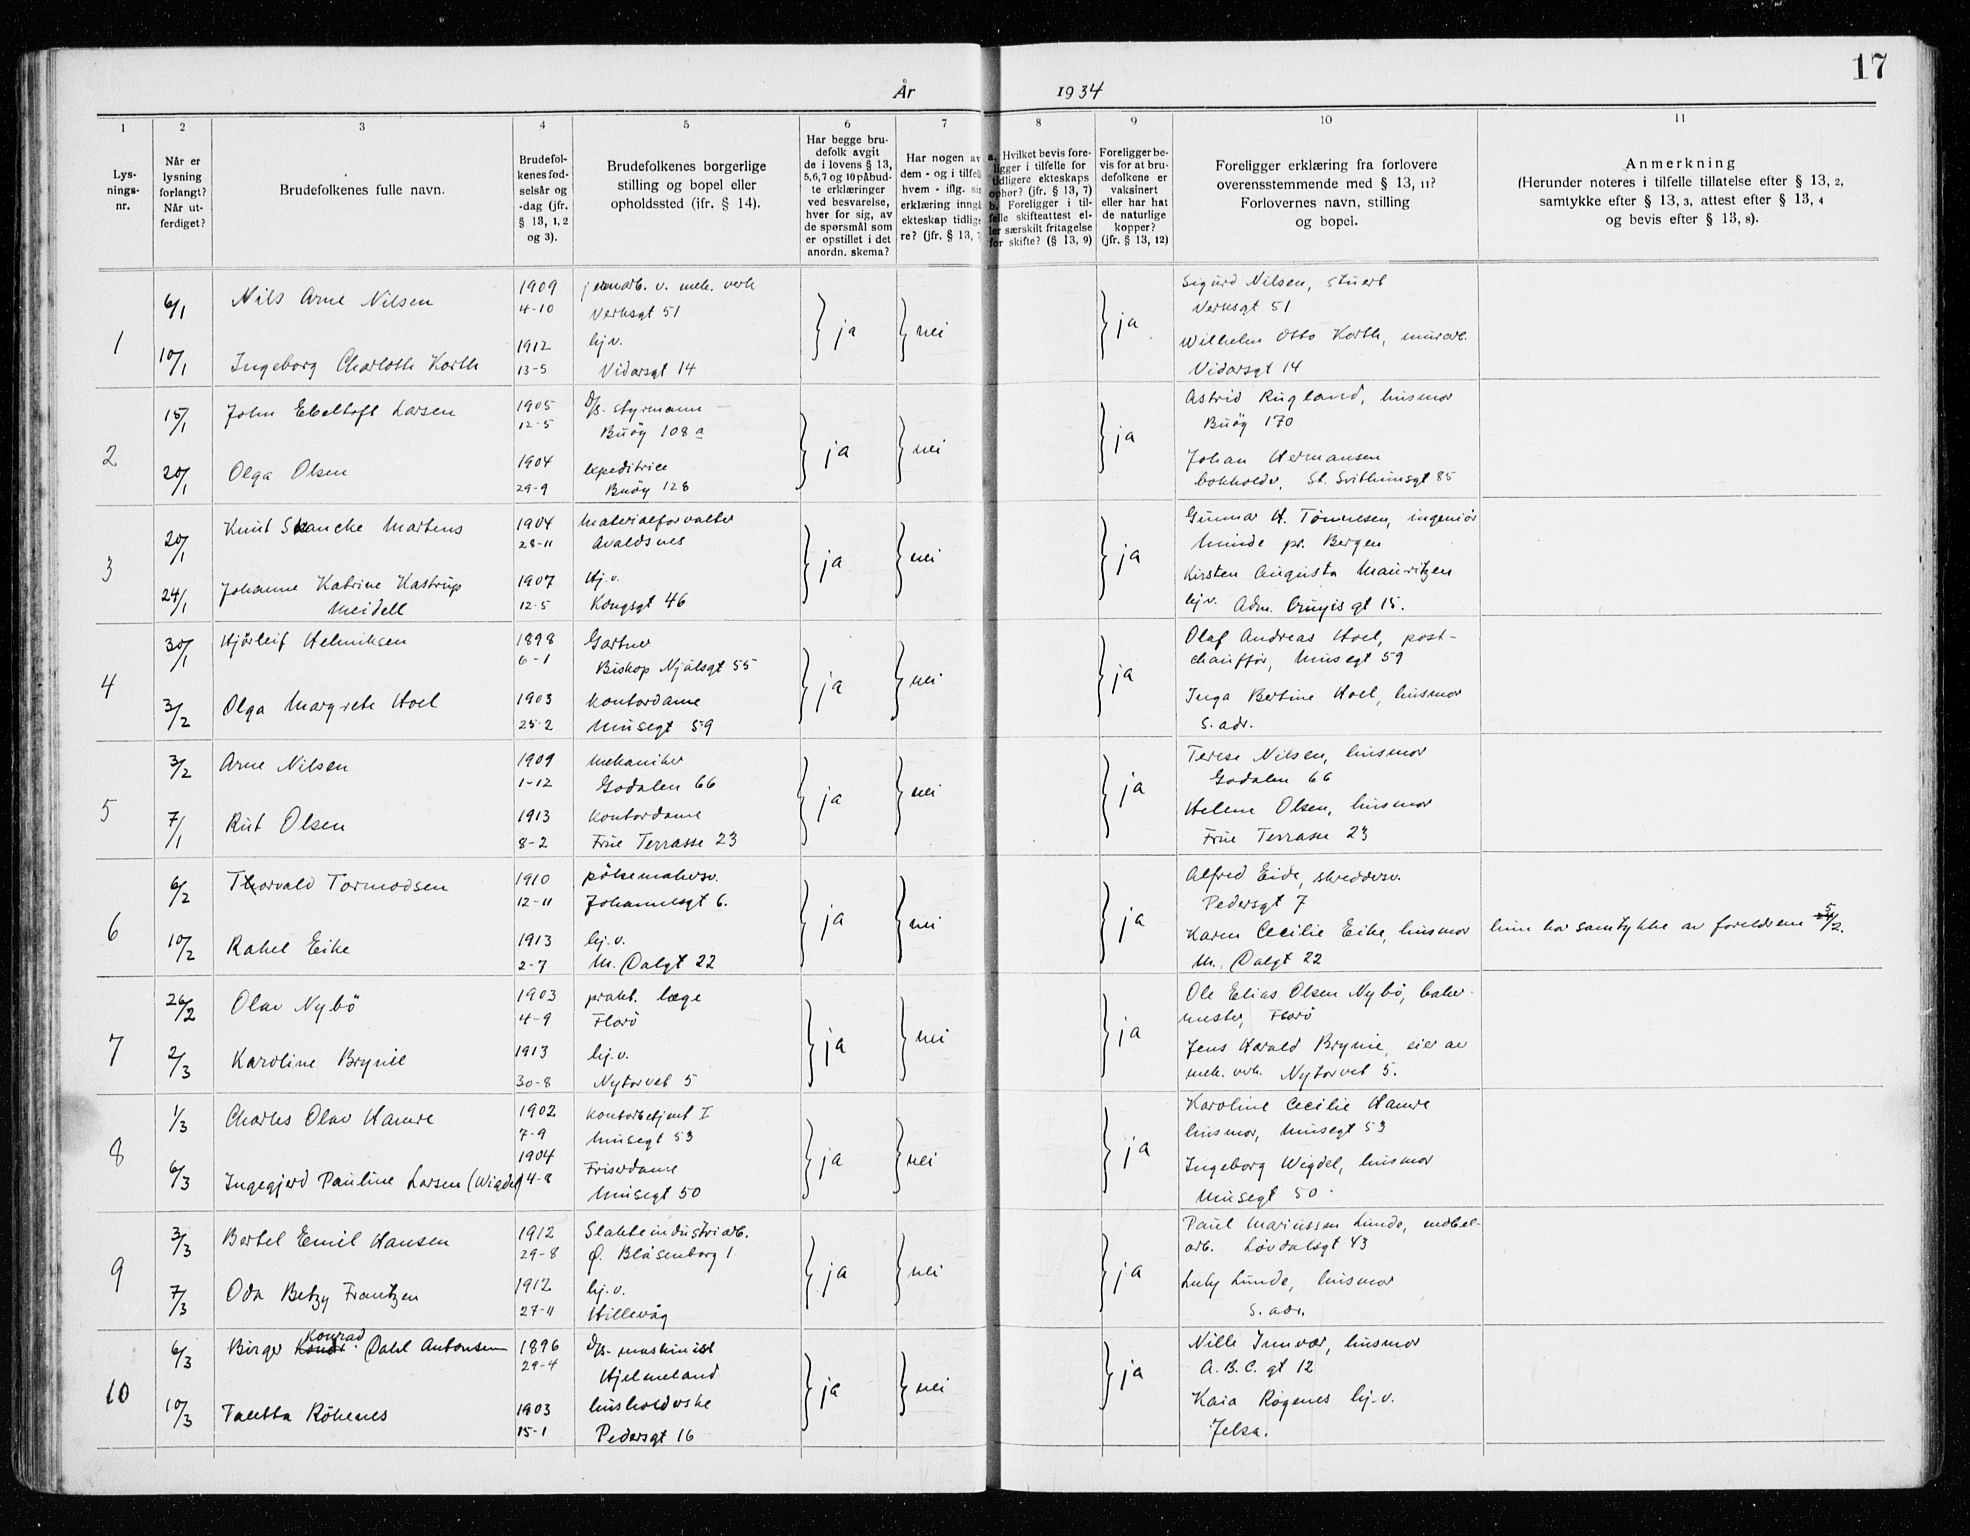 17
År 1934
1 2 3 4 5 6 7 8 9 10 11
Lys-
nings-
nr.
Når er
lysning
forlangt?
Når ut-
ferdiget?
Brudefolkenes fulle navn.
Brudefol-
kenes fød-
selsår og
-dag (jfr.
§ 13, 1, 2
og 3).
Brudefolkenes borgerlige
stilling og bopel eller
opholdssted (ifr. § 14).
Har begge bru-
defolk avgit
de i lovens § 13,
5, 6, 7 og 10 påbud-
te erklæringer
ved besvarelse,
hver for sig, av
de spørsmål som
er opstillet i det
anordn. skema?
Har nogen av
dem - og i tilfelle
hvem - iflg. sin
erklæring inngått
ekteskap tidlige-
re? (jfr. § 13,
a. Hvilket bevis fore-
ligger i tilfelle for
tidligere ekteskaps
ophør? (jfr. § 13, 7)
b. Foreligger i til-
felle skifteattest el-
ler særskilt fritagelse
for skifte? (§ 13, 9)
Foreligger be-
vis for at bru-
defolkene er
vaksinert
eller har hat
de naturlige
kopper?
(jfr. § 13, 12)
Foreligger erklæring fra forlovere
overensstemmende med § 13, 11?
Forlovernes navn, stilling
og bopel.
Anmerkning
(Herunder noteres i tilfelle tillatelse efter § 13, 2,
samtykke efter § 13, 3, attest efter § 13, 4
og bevis efter § 13, 8).
1
6/1 Nils Arne Nilsen 1909 jernarb. v. mek. verk
4-10 Verksgt 51
10/1 Ingeborg Charloth Korth 1912 hj.v.
13-5 Vidarsgt 14
ja nei ja
Sigurd Nilsen, stuert
Verksgt 51
Wilhelm Otto Korth, murarb.
Vidarsgt 14
2
15/1 John Ebeltoft Larsen 1905 D/S. styrmann
12-5 Buøy 108 a
20/1 Olga Olsen 1904 expeditrice
29-9 Buøy 128
ja nei ja
Astrid Rugland, husmor
Buøy 170
Johan Hermansen
bokholder, St. Svithunsgt 85
3
20/1 Knut Skancke Martens 1904 Materialforvalter
28-11 Avaldsnes
24/1 Johanne Katrine Kastrup 1907 Hj.v.
Meidell 12-5 Kongsgt 46
ja nei ja
Gunnar H. Tønnesen, ingeniør
Minde pr. Bergen
Kirsten Augusta Mauritzen
hj.v. Adm. Cruysgt 15.
4
30/1 Hjørleif Helmiksen 1898 Gartner
6-1 Biskop Njålsgt 55
3/2 Olga Margrete Hoel 1903 Kontordame
25-2 Musegt 59
ja nei ja
Olaf Andreas Hoel, post-
chauffør, Musegt 59
Inga Bertine Hoel, husmor
s. adr.
5
3/2 Arne Nilsen 1909 mekaniker
1-12 Godalen 66
7/1 Rut Olsen 1913 Kontordame
8-2 Frue Terrasse 23
ja nei ja
Terese Nilsen, husmor
Godalen 66
Helene Olsen, husmor
Frue Terrasse 23
6
6/2 Thorvald Tormodsen 1910 pølsemakersv.
12-11 Johannesgt 6.
10/2 Rakel Eike 1913 hj.v.
2-7 M. Dalgt 22
ja nei ja
Alfred Eide, skreddersv.
Pedersgt 7
Karen Cecilie Eike, husmor hun har samtykke av foreldrene 5/2.
M. Dalgt 22
7
26/2 Olav Nybö 1903 prakt. læge
4-9 Florö
2/3 Karoline Brynie 1913 hj.v.
30-8 Nytorvet 5
ja nei ja
Ole Elias Olsen Nybö, baker-
mester, Florö
Jens Harald Brynie, eier av
mek. verk. Nytorvet 5.
8
1/3 Charles Olav Hamre 1902 Kontorbetjent I
7-9 Musegt 53
6/3 Ingegjerd Pauline Larsen (Wigdel) 1904 Friserdame
14-8 Musegt 50
ja nei ja
Karoline Cecilie Hamre
husmor, Musegt 53
Ingeborg Wigdel, husmor
Musegt 50
9
3/3 Bertel Emil Hansen 1912 Slakteindustriarb.
29-8 Ø. Blåsenborg 1
7/3 Oda Betzy Frantzen 1912 hj.v.
27-11 Hillevåg
ja nei ja
Paul Marinussen Lunde, møbel-
arb. Løvdalsgt 43
Luly Lunde, husmor
s. adr.
10
6/3 Birger Konrad Dahl Antonsen 1896 D/S.-maskinist
29-4 Hjelmeland
10/3 Taletta Rökenes 1903 husholderske
15-1 Pedersgt 16
ja nei ja
Nille Innvær, husmor
A.B.C. gt 12
Kaia Rögenes hj.v.
Jelsa.